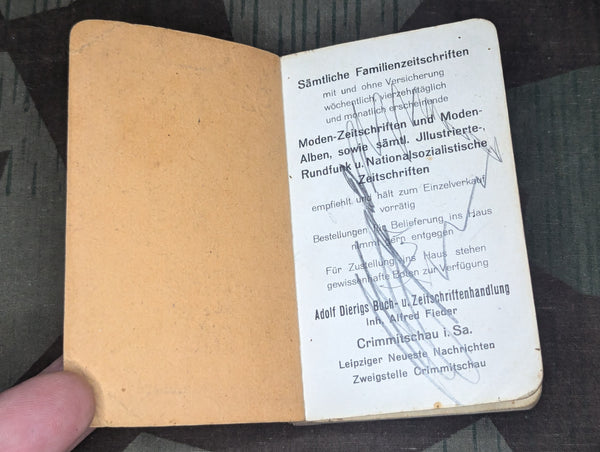 Sämtliche Familienzeitschriften
mit und ohne Versicherung
wöchentlich vierzehntäglich
und monatlich erscheinende
Moden-Zeitschriften und Moden-
Alben, sowie sämtl. Jllustrierte-,
Rundfunk u. Nationalsozialistische
Zeitschriften
empfiehlt und hält zum Einzelverkauf
vorrätig
Bestellungen Belieferung ins Haus
nimmt gern entgegen
Für Zustellung ins Haus stehen
gewissenhafte Boten zur Verfügung
Adolf Dierigs Buch- u. Zeitschriftenhandlung
Inh. Alfred Fleder
Crimmitschau i. Sa.
Leipziger Neueste Nachrichten
Zweigstelle Crimmitschau